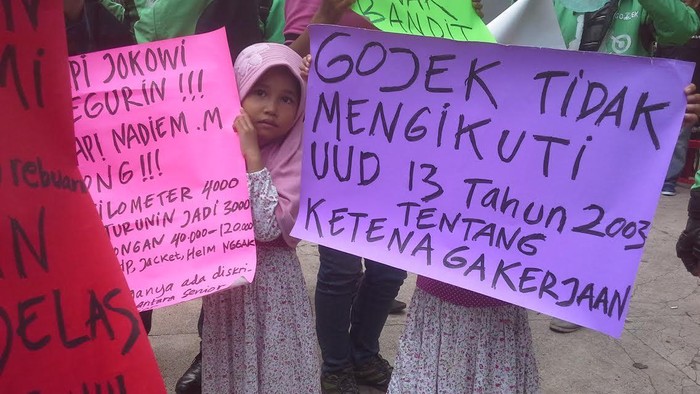 BANDIT
PI JOKOWI
EGURIN !!!
API NADIEM .M
ONG !!!
ILOMETER 4000
TURUNIN JADI 3000
ONGAN 40.000 - 120.000
HP, Jacket, Helm NGGAK
anya ada diskri-
antara Senior
GOJEK TIDAK
MENGIKUTI
UUD 13 Tahun 2003
TENTANG
KETENAGAKERJAAN
rebuan
DELAS